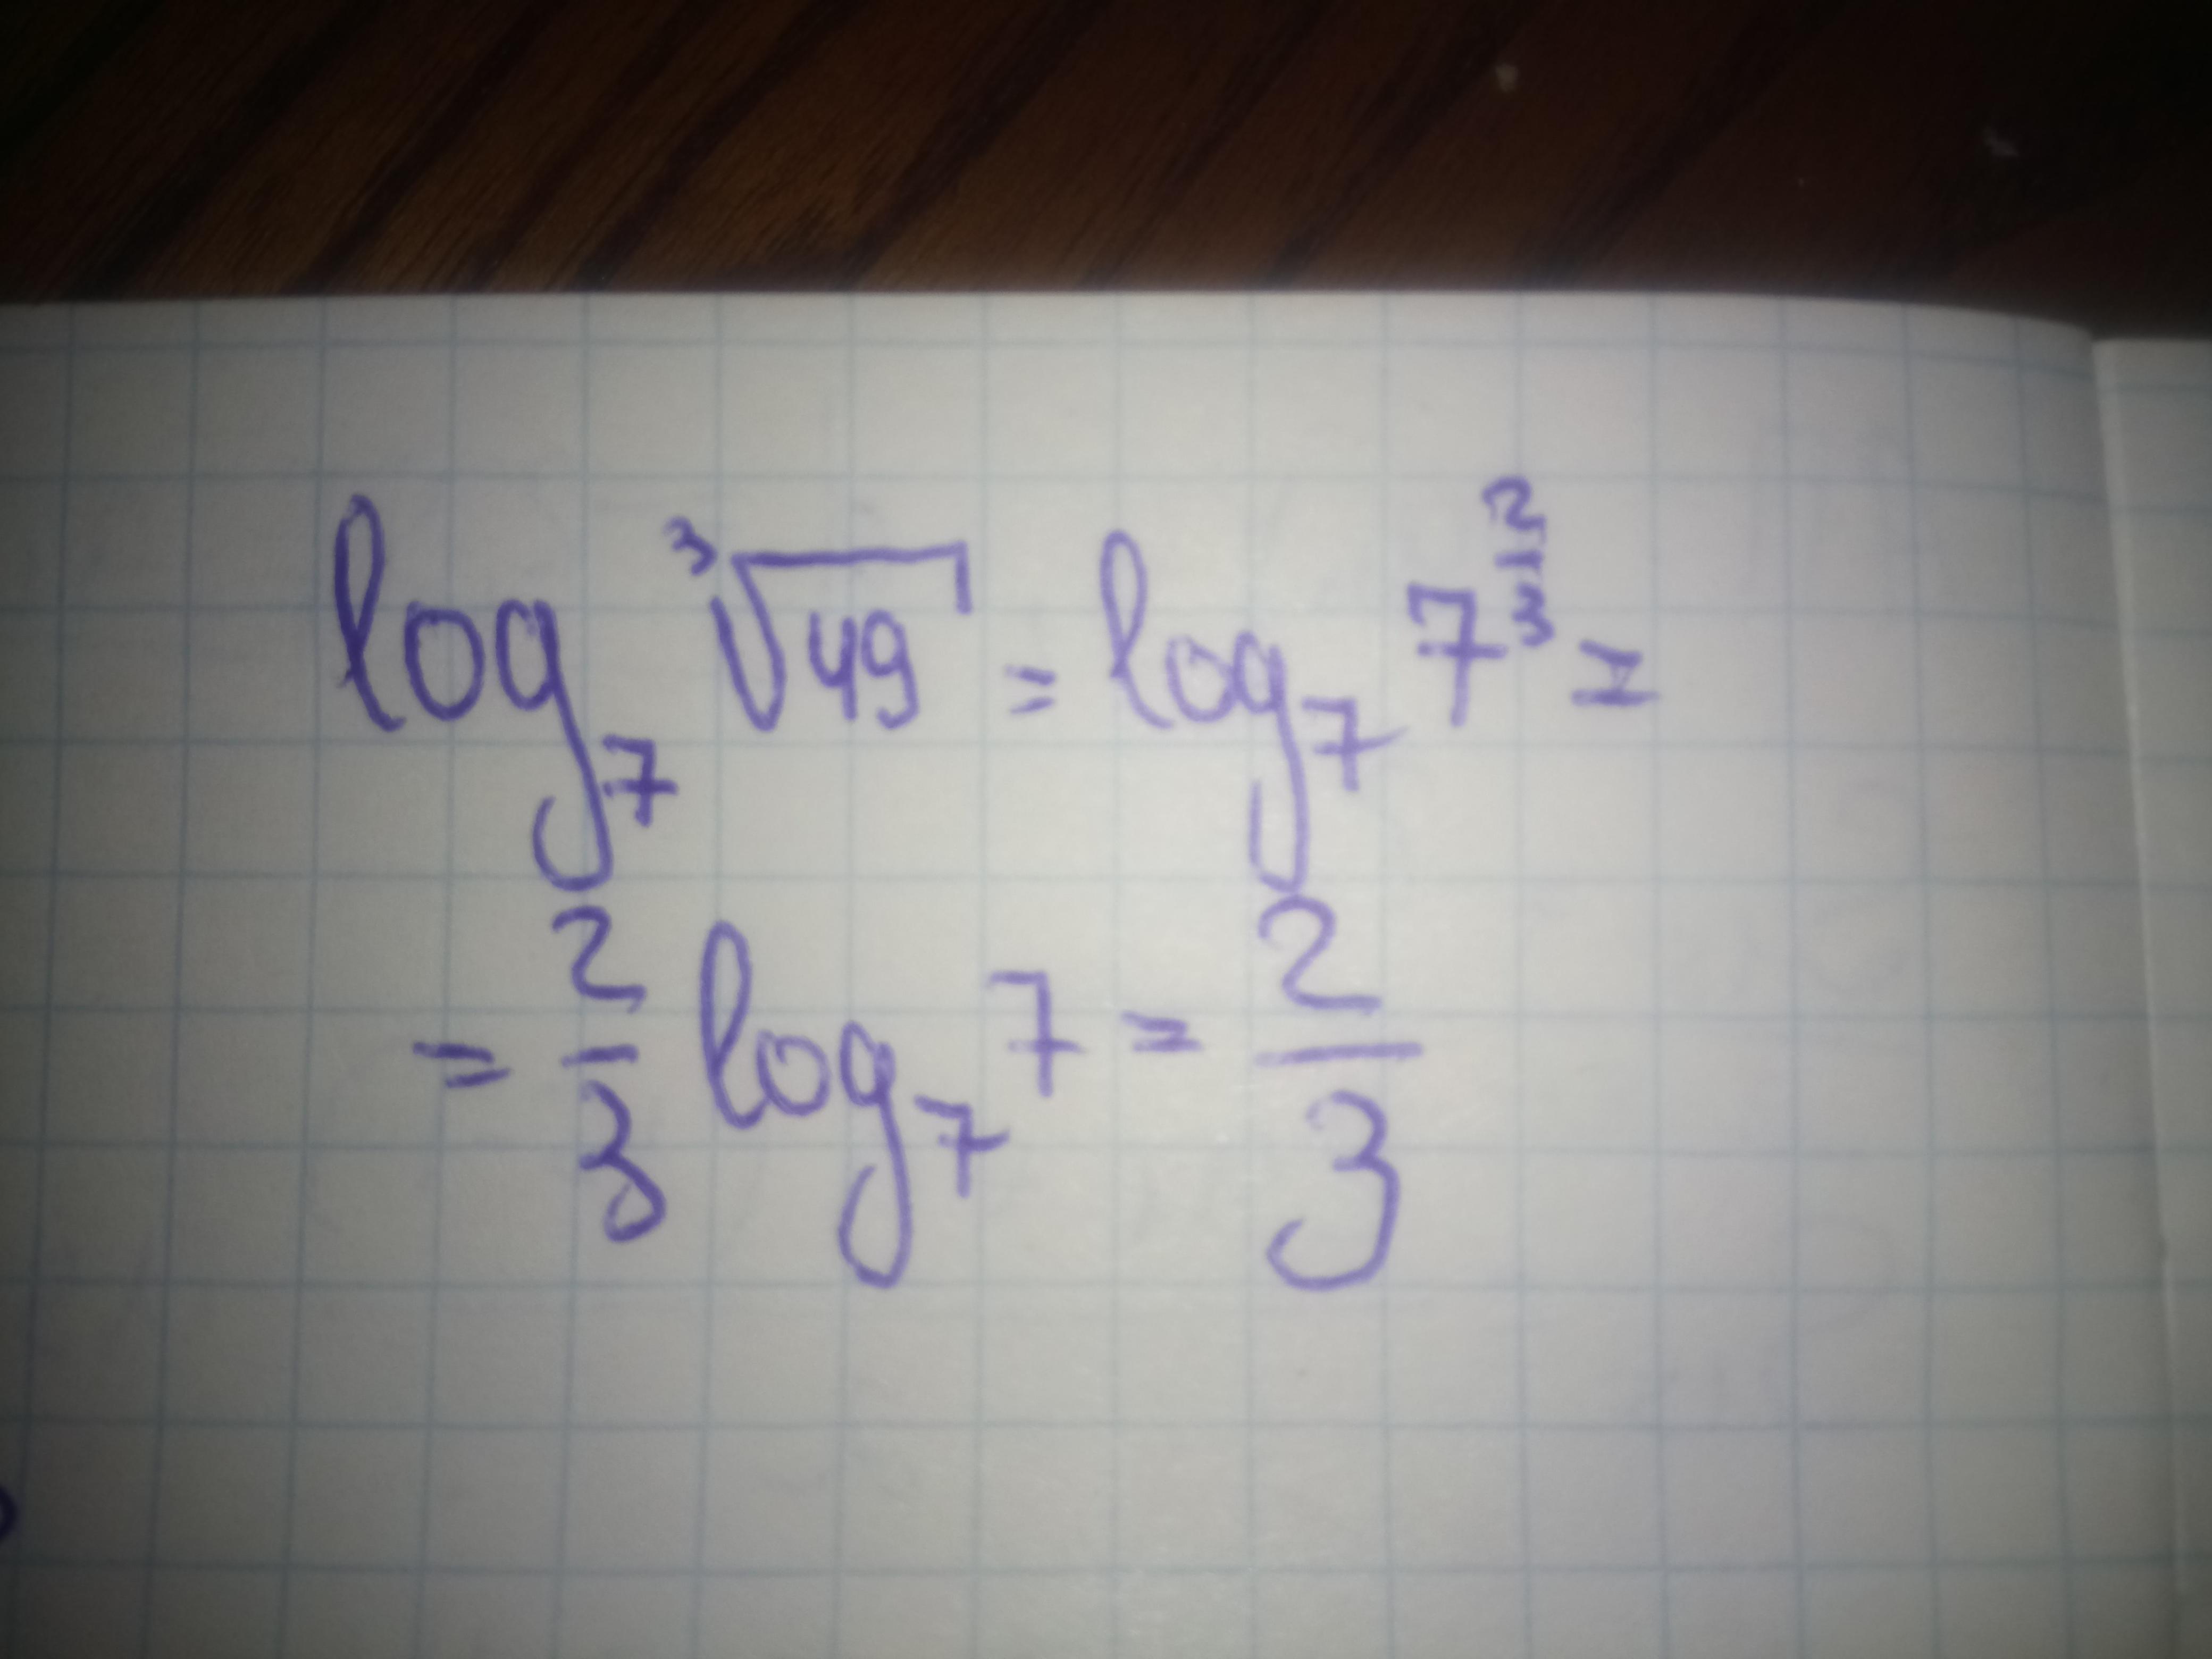 log₇ ∛49 = log₇ 7^(2/3) =
= 2/3 log₇ 7 = 2/3